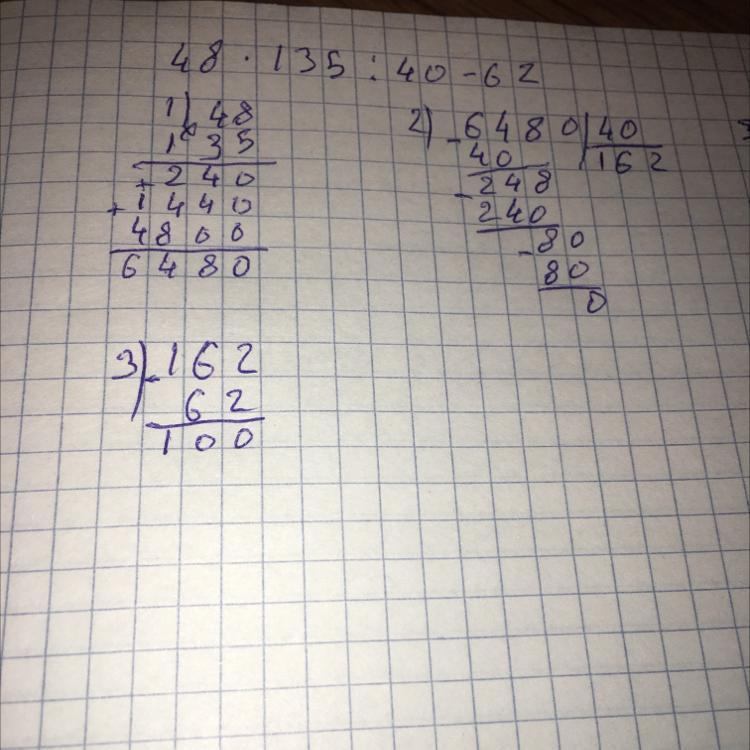 48 · 135 : 40 - 62
1) × 48
1 35
+ 240
+ 1440
4800
6480
2) - 6480 | 40
40 | 162
- 248
240
- 80
80
0
3) - 162
62
100